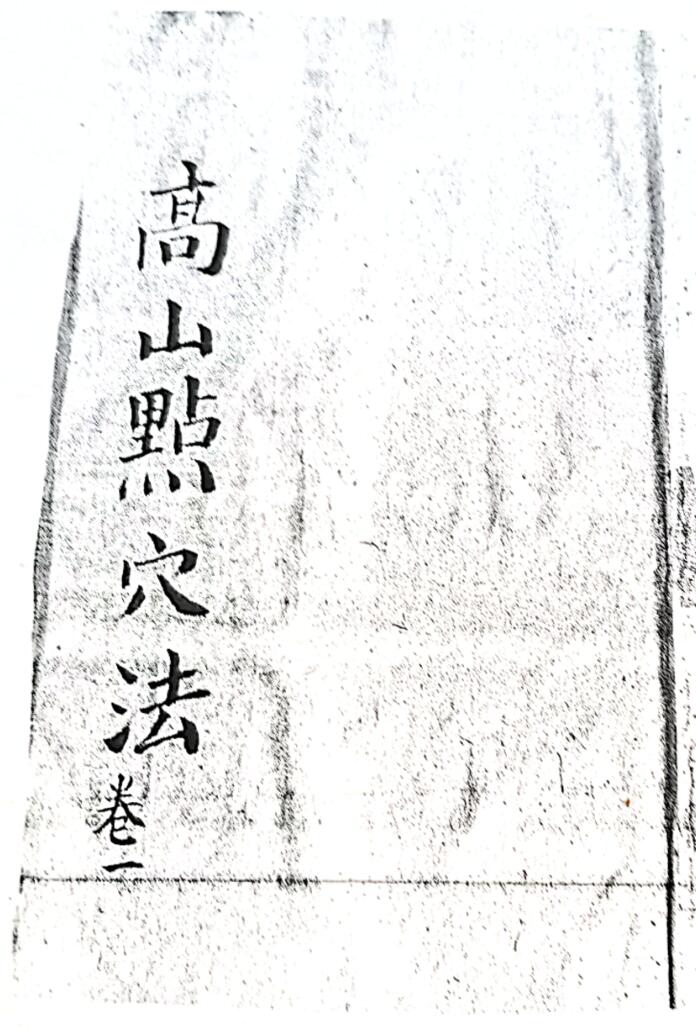 高山點穴法
卷一